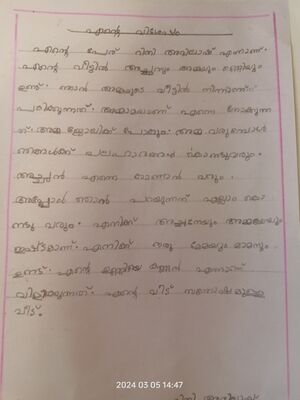 എന്റെ വിശേഷം
എന്റെ പേര് റിനി അഭിലാഷ് എന്നാണ്.
എന്റെ വീട്ടിൽ അച്ഛനും അമ്മയും ഉണ്ണിയും
ഉണ്ട്. ഞാൻ അമ്മയുടെ വീട്ടിൽ നിന്നാണ്
പഠിക്കുന്നത്. അമ്മാമ്മയാണ് എന്നെ നോക്കുന്ന
ത്. അമ്മ ജോലിക്ക് പോകും. അമ്മ വരുമ്പോൾ
ഞങ്ങൾക്ക് പലഹാരങ്ങൾ കൊണ്ടുവരും.
അച്ഛൻ എന്നെ കാണാൻ വരും.
അപ്പോൾ ഞാൻ പറയുന്നത് എല്ലാം കൊ
ണ്ടു വരും. എനിക്ക് അച്ഛനേയും അമ്മയേയും
ഇഷ്ടമാണ്. എനിക്ക് ഒരു മേമയും മാമനും
ഉണ്ട്. എന്റെ ഉണ്ണിയെ കണ്ണൻ എന്നാണ്
വിളിക്കുന്നത്. എന്റെ വീട് സന്തോഷമുള്ള
വീട്.
റിനി അഭിലാഷ്
2024 03 05 14:47